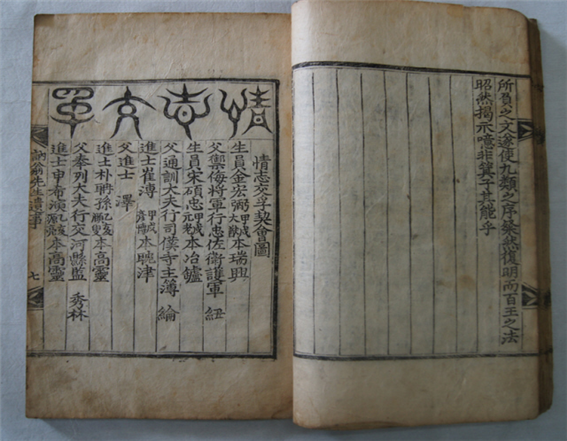 所負之文遂使九類之序粲然復明而百王之法
昭然揭示噫非箕子其能乎
情志交孚
情志交孚契會圖
生員金宏弼甲戌大猷本瑞興
父禦侮將軍行忠佐衛護軍 紐
生員宋碩忠甲戌本冶爐
父通訓大夫行司僕寺主簿 綸
進士崔溥甲戌本耽津
父進士 澤
進士朴聃孫本高靈
父奉列大夫行交河縣監 秀林
進士申希演本高靈
先生遺事 七